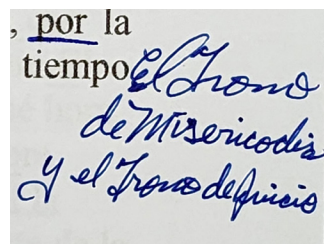 , por la
tiempo El Trono
de Misericodia
y el Trono de Juicio